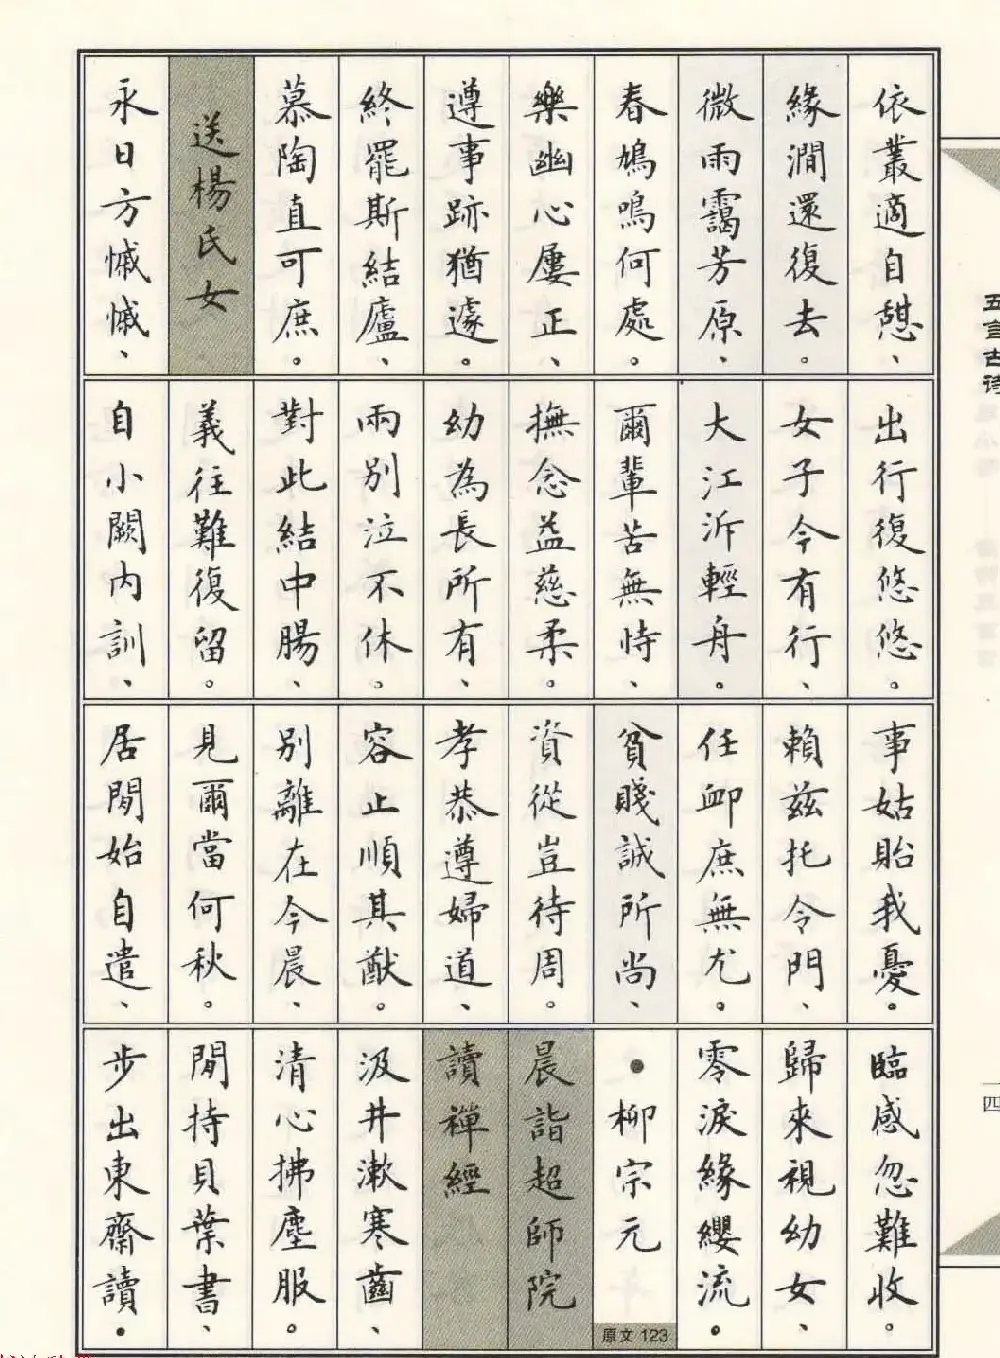 依叢適自憩、
緣澗還復去。
微雨靄芳原、
春鳩鳴何處。
樂幽心屢正、
遵事跡猶遽。
終罷斯結廬、
慕陶直可庶。
送楊氏女
永日方慽慽、
出行復悠悠。
女子今有行、
大江泝輕舟。
爾輩苦無恃、
撫念益慈柔。
幼為長所有、
兩別泣不休。
對此結中腸、
義往難復留。
自小闕內訓、
事姑貽我憂。
賴茲托令門、
任卹庶無尤。
貧賤誠所尚、
資從豈待周。
孝恭遵婦道、
容止順其猷。
別離在今晨、
見爾當何秋。
居閒始自遣、
臨感忽難收。
歸來視幼女、
零淚緣纓流。
●柳宗元
原文 123
晨詣超師院
讀禪經
汲井漱寒齒、
清心拂塵服。
閒持貝葉書、
步出東齋讀。
五言古诗
四